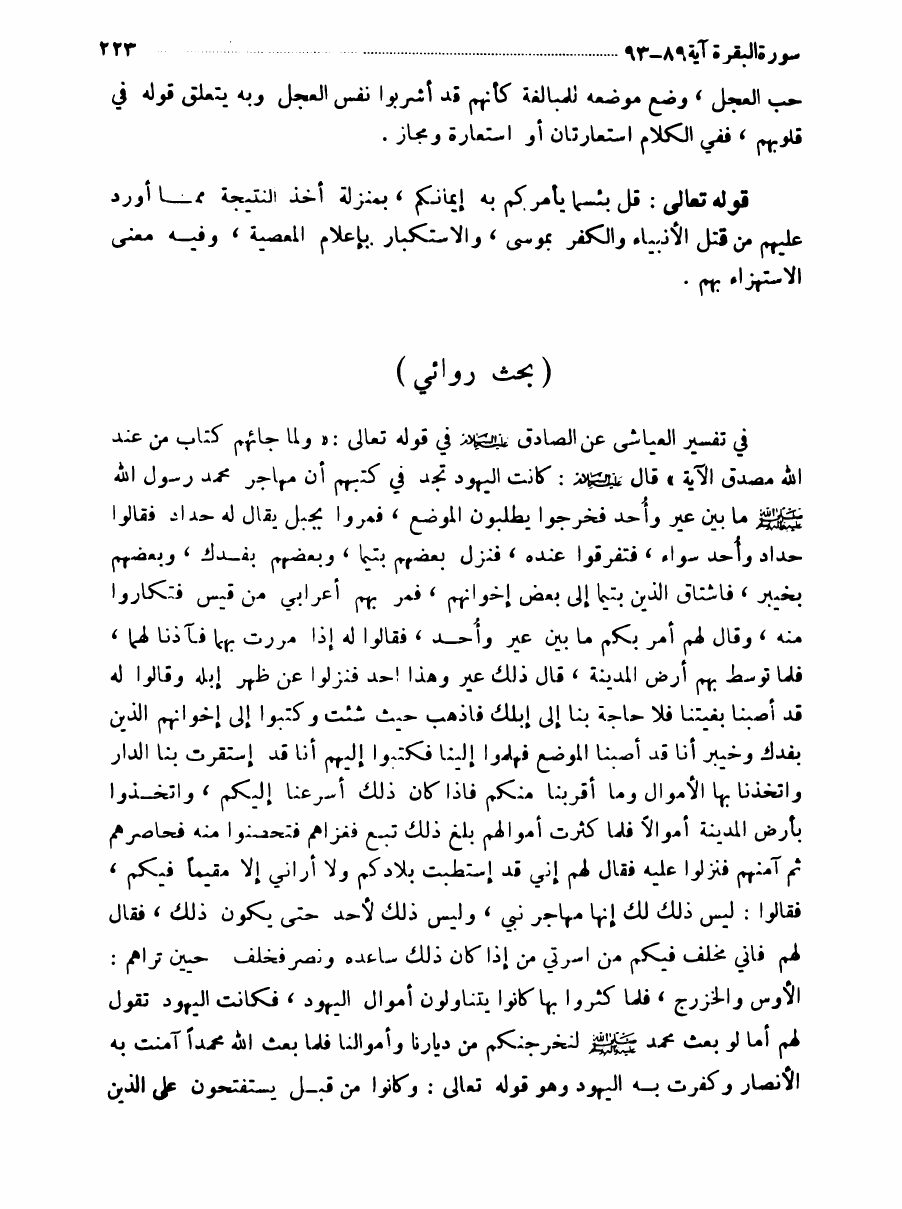 سورة البقرة آية ٨٩ــ٩٣ ........................ ٢٢٣
حب العجل ، وضع موضعه للمبالغة كأنهم قد أشربوا نفس العجل وبه يتعلق قوله في
قلوبهم ، ففي الكلام استعارتان أو استعارة ومجاز .
قوله تعالى : قل بئسما يأمركم به إيمانكم ، بمنزلة أخذ النتيجة ممـا أورد
عليهم من قتل الأنبياء والكفر بموسى ، والاستكبار بإعلام المعصية ، وفيـه معنى
الاستهزاء بهم .
( بحث روائي )
في تفسير العياشي عن الصادق عليه السلام في قوله تعالى : « ولما جائهم كتاب من عند
الله مصدق الآية » قال عليه السلام : كانت اليهود تجد في كتبهم أن مهاجر محمد رسول الله
صلى الله عليه وآله ما بين عير وأُحد فخرجوا يطلبون الموضع ، فمروا بجبل يقال له حداد فقالوا
حداد وأُحد سواء ، فتفرقوا عنده ، فنزل بعضهم بتيما ، وبعضهم بفـدك ، وبعضهم
بخيبر ، فاشتاق الذين بتيما إلى بعض إخوانهم ، فمر بهم أعرابي من قيس فتكاروا
منه ، وقال لهم أمر بكم ما بين عير وأُحـد ، فقالوا له إذا مررت بهما فآذنا لهما ،
فلما توسط بهم أرض المدينة ، قال ذلك عير وهذا احد فنزلوا عن ظهر إبله وقالوا له
قد أصبنا بغيتنا فلا حاجة بنا إلى إبلك فاذهب حيث شئت وكتبوا إلى إخوانهم الذين
بفدك وخيبر أنا قد أصبنا الموضع فهلموا إلينا فكتبوا إليهم أنا قد إستقرت بنا الدار
واتخذنا بها الأموال وما أقربنا منكم فاذا كان ذلك أسرعنا إليكم ، واتخـذوا
بأرض المدينة أموالاً فلما كثرت أموالهم بلغ ذلك تبع فغزاهم فتحصنوا منه فحاصرهم
ثم آمنهم فنزلوا عليه فقال لهم إني قد إستطبت بلادكم ولا أراني إلا مقيماً فيكم ،
فقالوا : ليس ذلك لك إنها مهاجر نبي ، وليس ذلك لأحد حتى يكون ذلك ، فقال
لهم فاني مخلف فيكم من اسرتي من إذا كان ذلك ساعده ونصر فخلف حين تراهم :
الأوس والخزرج ، فلما كثروا بها كانوا يتناولون أموال اليهود ، فكانت اليهود تقول
لهم أما لو بعث محمد صلى الله عليه وآله لنخرجنكم من ديارنا وأموالنا فلما بعث الله محمداً آمنت به
الأنصار وكفرت بـه اليهود وهو قوله تعالى : وكانوا من قبـل يستفتحون على الذين